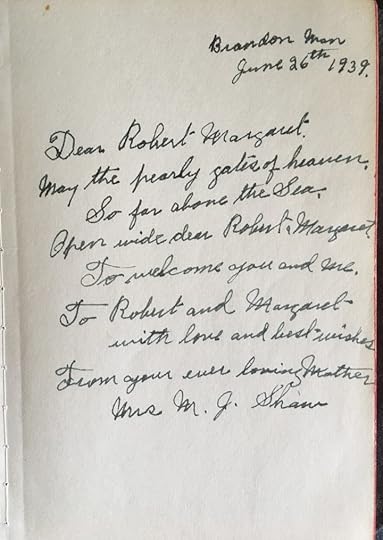 Brandon Man
June 26th 1939.
Dear Robert Margaret.
May the pearly gates of heaven.
So far above the Sea.
Open wide dear Robert & Margaret
To welcome you and me.
To Robert and Margaret
with love and best wishes
From your ever loving Mother
Mrs M. J. Shaw